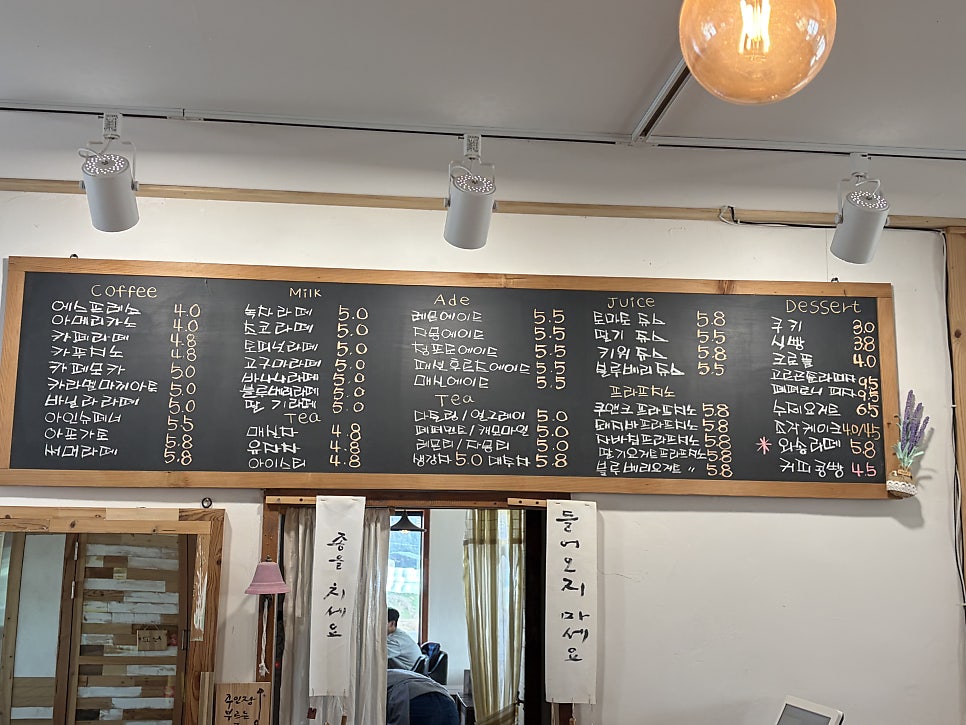 Coffee
에스프레소 4.0
아메리카노 4.0
카페라떼 4.8
카푸치노 4.8
카페모카 5.0
카라멜마끼아또 5.0
바닐라라떼 5.0
아인슈페너 5.5
아포가토 5.8
썸머라떼 5.8
Milk
녹차라떼 5.0
초코라떼 5.0
토피넛라떼 5.0
고구마라떼 5.0
바나나라떼 5.0
블루베리라떼 5.0
딸기라떼 5.0
Tea
매실차 4.8
유자차 4.8
아이스티 4.8
Ade
레몬에이드 5.5
자몽에이드 5.5
청포도에이드 5.5
패션후르츠에이드 5.5
매실에이드 5.5
Tea
다즐링/얼그레이 5.0
페퍼민트/캐모마일 5.0
레몬티/자몽티 5.0
생강차 5.0 대추차 5.8
Juice
토마토 쥬스 5.8
딸기 쥬스 5.5
키위 쥬스 5.8
블루베리 쥬스 5.5
프라프치노
쿠앤크 프라프치노 5.8
자바칩프라프치노 5.8
딸기요거트프라프치노 5.8
블루베리요거트 〃 5.8
Dessert
쿠키 3.0
크로플 4.0
고르곤졸라피자 9.5
페퍼로니 피자 9.5
수제요거트 6.5
조각케이크 4.0/4.5
와송라떼 5.8
커피콩빵 4.5
종을 치세요
들어오지마세요
주인장
부르는